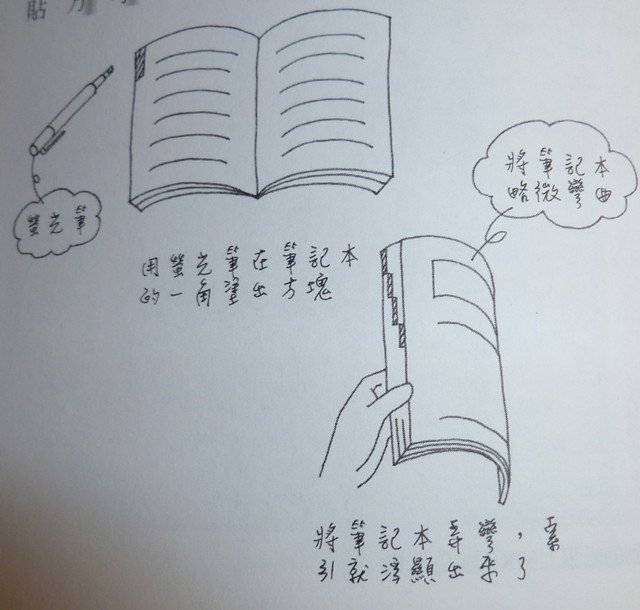 貼方
螢光筆
用螢光筆在筆記本
的一角塗出方塊
將筆記本
略微彎曲
將筆記本弄彎，索
引就浮顯出來了